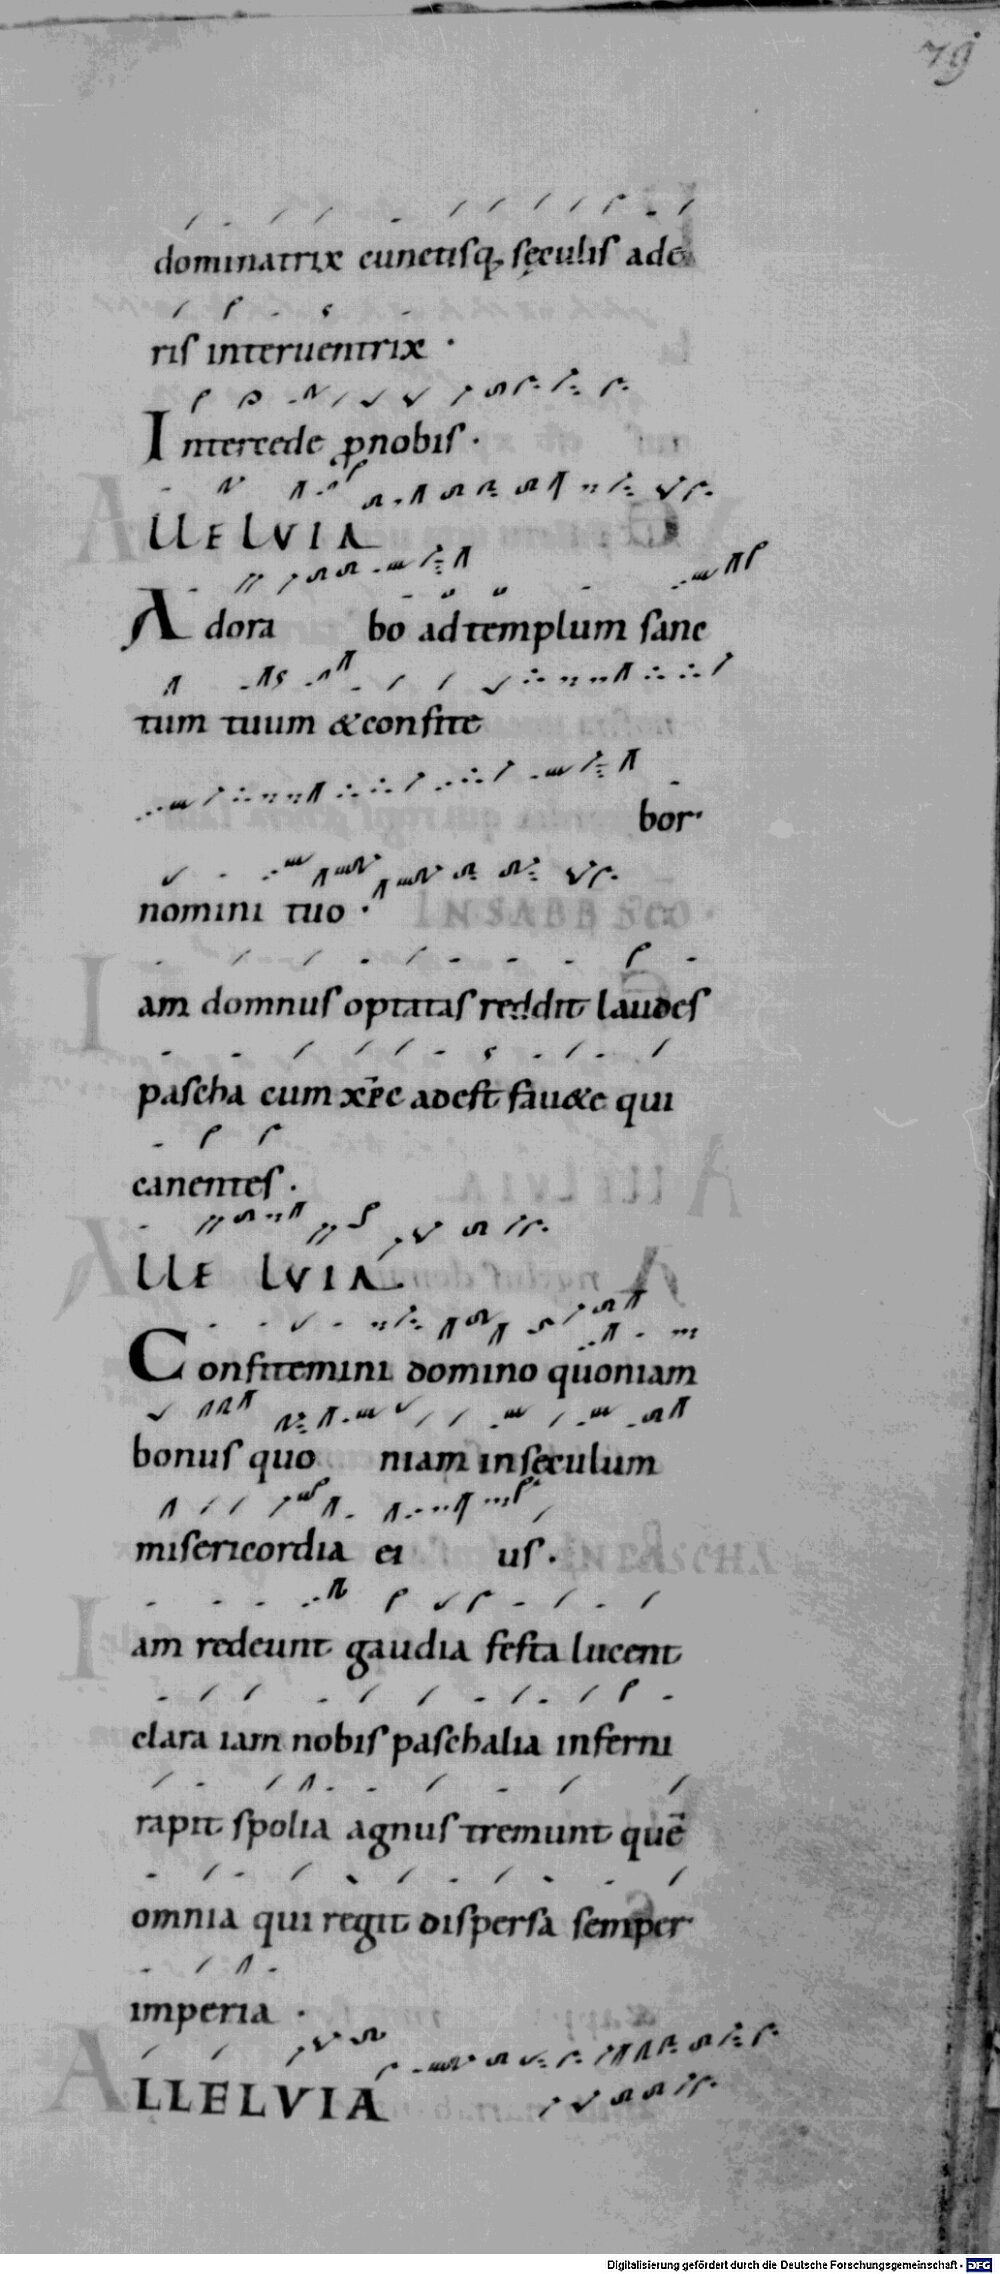 79
dominatrix cunctisq; sęculis ade
ris interuentrix .
Intercede pnobis .
ALLELVIA
Adorabo ad templum sanc
tum tuum & confite
bor
nomini tuo .
INSABB SCO .
Iam domnus optatas reddit laudes
pascha cum xpc adest fau&e qui
canentes .
ALLE LVIA
Confitemini domino quoniam
bonus quoniam inseculum
misericordia eius .
INPASCHA
Iam redeunt gaudia festa lucent
clara iam nobis paschalia inferni
rapit spolia agnus tremunt quē
omnia qui regit dispersa semper
imperia .
ALLELVIA
Digitalisierung gefördert durch die Deutsche Forschungsgemeinschaft - DFG